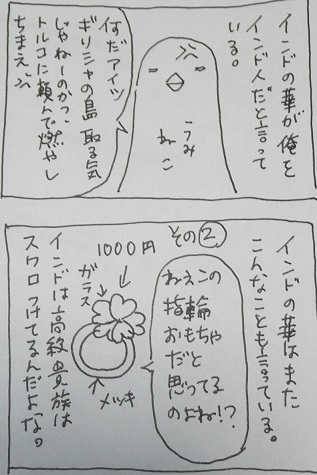 インドの華が俺を
インド人だと言って
いる。
うみ
ねこ
何だアイツ
ギリシャの島取る気
じゃねーのかっ
トルコに頼んで燃やし
ちまえ
インドの華はまた
こんなことも言っている。
その②
ねえこの
指輪
おもちゃ
だと
思ってる
のよね!?
1000円
ガラス
メッキ
インドは高級貴族は
スワロつけてるんだよな。